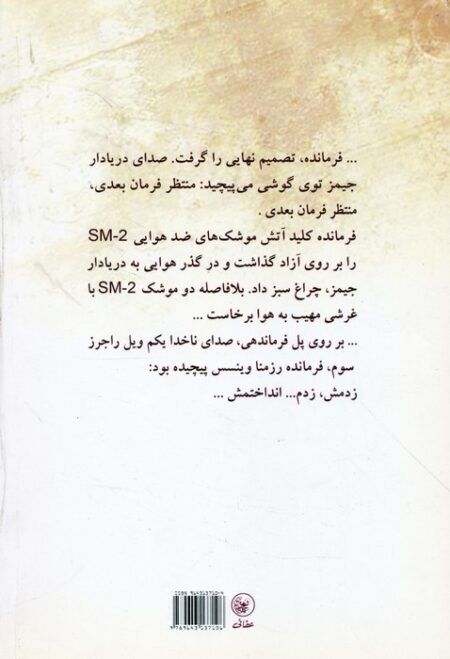 ... فرمانده، تصمیم نهایی را گرفت. صدای دریادار
جیمز توی گوشی می‌پیچید: منتظر فرمان بعدی،
منتظر فرمان بعدی .
فرمانده کلید آتش موشک‌های ضد هوایی SM-2
را بر روی آزاد گذاشت و در گذر هوایی به دریادار
جیمز، چراغ سبز داد. بلافاصله دو موشک SM-2 با
غرشی مهیب به هوا برخاست ...
... بر روی پل فرماندهی، صدای ناخدا یکم ویل راجرز
سوم، فرمانده رزمنا وینسس پیچیده بود:
زدمش، زدم... انداختمش ...
عطائی